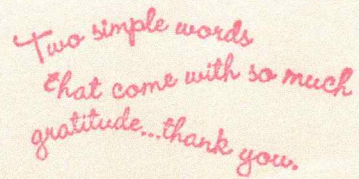 Two simple words
that come with so much
gratitude...thank you.